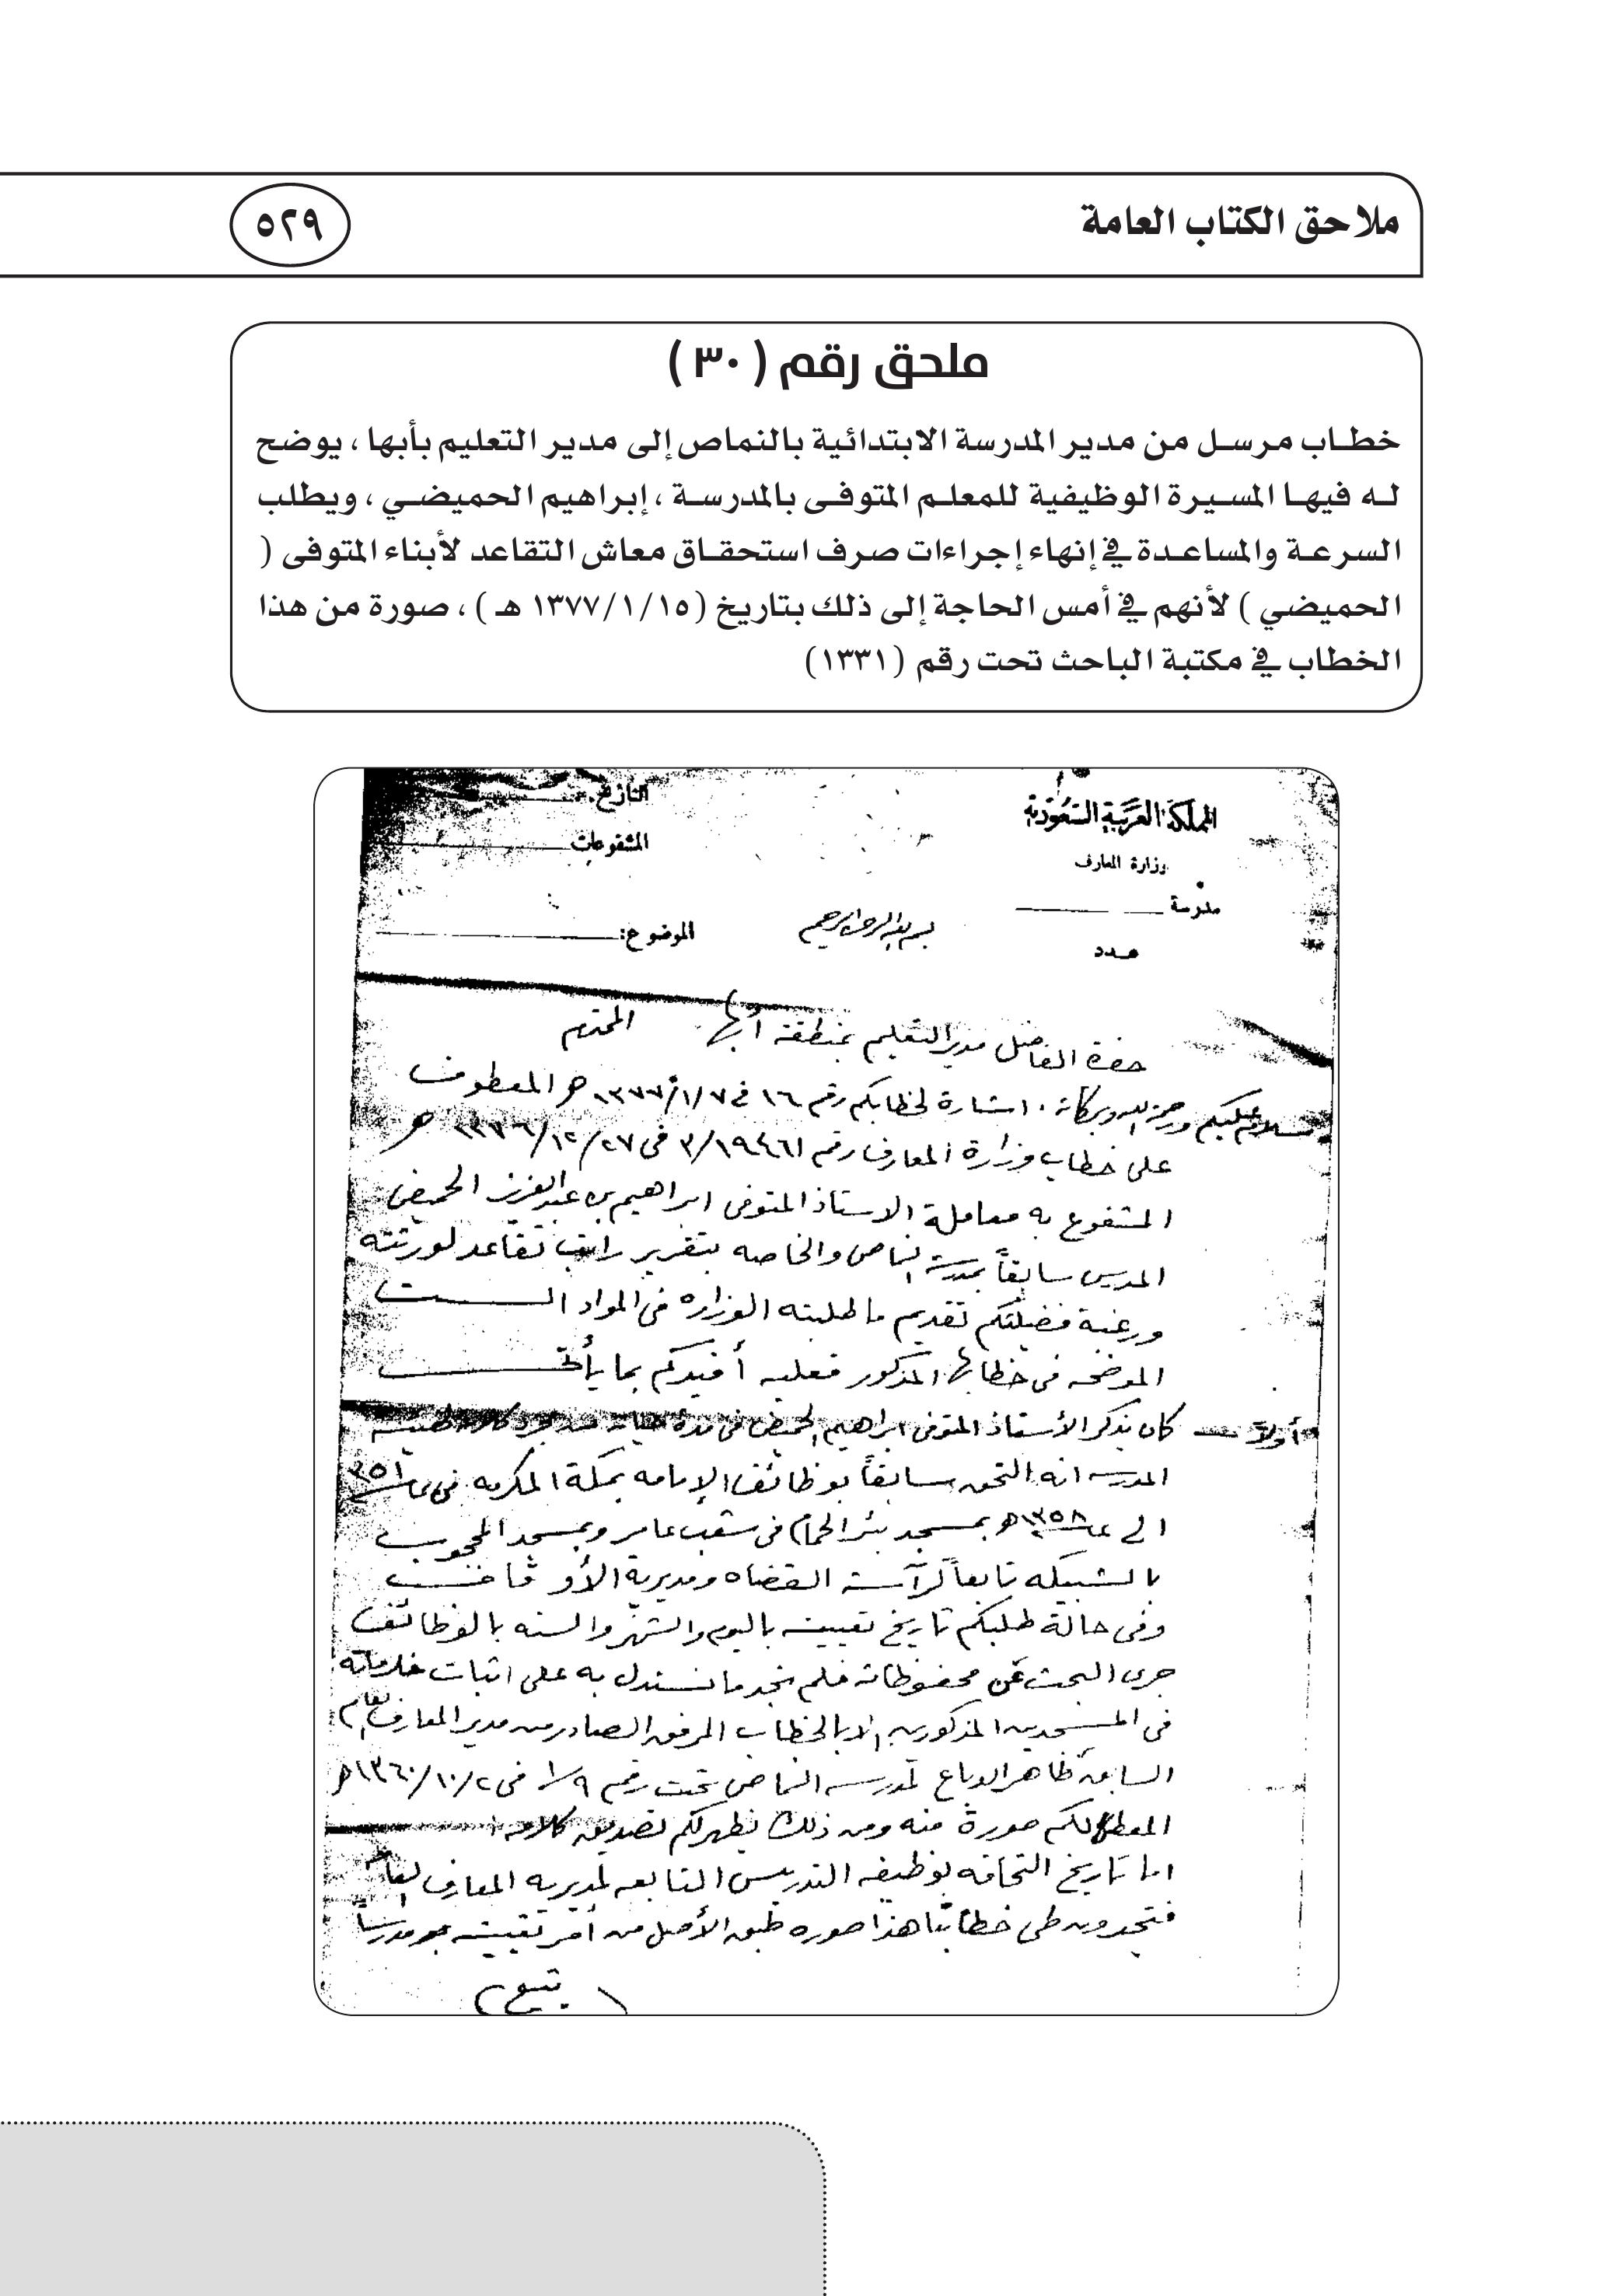 ملاحق الكتاب العامة
٥٢٩
ملحق رقم ( ٣٠ )
خطاب مرسل من مدير المدرسة الابتدائية بالنماص إلى مدير التعليم بأبها ، يوضح
له فيها المسيرة الوظيفية للمعلم المتوفى بالمدرسة ، إبراهيم الحميضي ، ويطلب
السرعة والمساعدة في إنهاء إجراءات صرف استحقاق معاش التقاعد لأبناء المتوفى (
الحميضي ) لأنهم في أمس الحاجة إلى ذلك بتاريخ (١٣٧٧/١/١٥ هـ ) ، صورة من هذا
الخطاب في مكتبة الباحث تحت رقم (١٣٣١)
المملكة العربية السعودية
وزارة المعارف
مدرسة
عدد
التاريخ
المشفوعات
الموضوع:
بسم الله الرحمن الرحيم
حضرة الفاضل مدير التعليم بمنطقة أبها المحترم
سلام عليكم ورحمة الله وبركاته . اشارة لخطابكم رقم ١٦ في ١٣٧٧/١/٧ هـ المعطوف
على خطاب وزارة المعارف رقم ٣/١٩٤٦١ في ١٣٧٦/١٢/٢٧ هـ
المشفوع به معاملة الاستاذ المتوفى ابراهيم بن عبد العزيز الحميضي
المدرس سابقاً بمدرسة النماص والخاصه بتقرير راتب تقاعد لورثته
ورغبة فضيلتكم تقديم ما طلبته الوزاره في المواد الست
الموضحه في خطابها المذكور فعليه أفيدكم بما يأتي
أولاً — كان يذكر الأستاذ المتوفى ابراهيم الحميضي في مدة حياته
المدرسه انه التحق سابقاً بوظائف الإمامه بمكة المكرمه في عام ١٣٥١
الى عام ١٣٥٨هـ بمسجد بئر الحمام في شعب عامر وبمسجد المحجوب
بالشبيكه تابعاً لرآسة القضاه ومديرية الأوقاف
وفى حالة طلبكم تاريخ تعيينه باليوم والشهر والسنه بالوظائف
جرى البحث عن محفوظاته فلم نجد ما نستدل به على اثبات خدماته
في المسجدين المذكورين الا بالخطاب المرفق الصادر من مدير المعارف العام
السابق طاهر الدباغ لمدرسه النماص تحت رقم ١/٩ في ١٣٦٠/١٠/٢هـ
المعطى لكم صورة منه ومن ذلك يظهر لكم تصديق كلامه
اما تاريخ التحاقه بوظيفه التدريس التابعه لمديريه المعارف العامه
فتجدون طى خطابنا هذا صوره طبق الأصل من أمر تعيينه مدرساً
( يتبع )